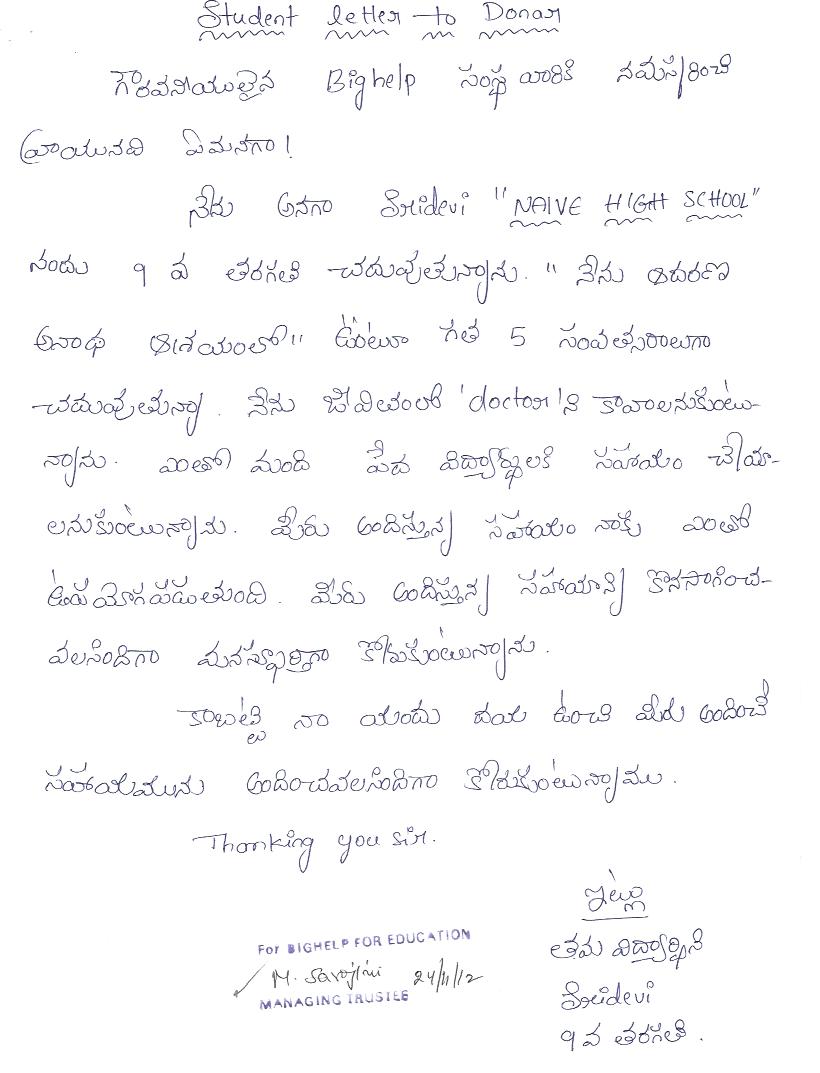 Student letter to Donar
గౌరవనీయులైన Bighelp సంస్థ వారికి నమస్కరించి
వ్రాయునది ఏమనగా!
నేను అనగా Sridevi "NAIVE HIGH SCHOOL"
నందు 9 వ తరగతి చదువుతున్నాను. "నేను ఆదరణ
అనాథ ఆశ్రయంలో" ఉంటూ గత 5 సంవత్సరాలుగా
చదువుతున్నా. నేను జీవితంలో 'doctor'ని కావాలనుకుంటు-
న్నాను. ఎంతో మంది పేద విద్యార్థులకి సహాయం చేయా-
లనుకుంటున్నాను. మీరు అందిస్తున్న సహాయం నాకు ఎంతో
ఉపయోగపడుతుంది. మీరు అందిస్తున్న సహాయాన్ని కొనసాగించ-
వలసిందిగా మనస్ఫూర్తిగా కోరుకుంటున్నాను.
కాబట్టి నా యందు దయ ఉంచి మీరు అందించే
సహాయమును అందించవలసిందిగా కోరుకుంటున్నాము.
Thanking you sir.
ఇట్లు
తమ విద్యార్థిని
Sridevi
9 వ తరగతి.
For BIGHELP FOR EDUCATION
M. Sarojini 24/11/12
MANAGING TRUSTEE